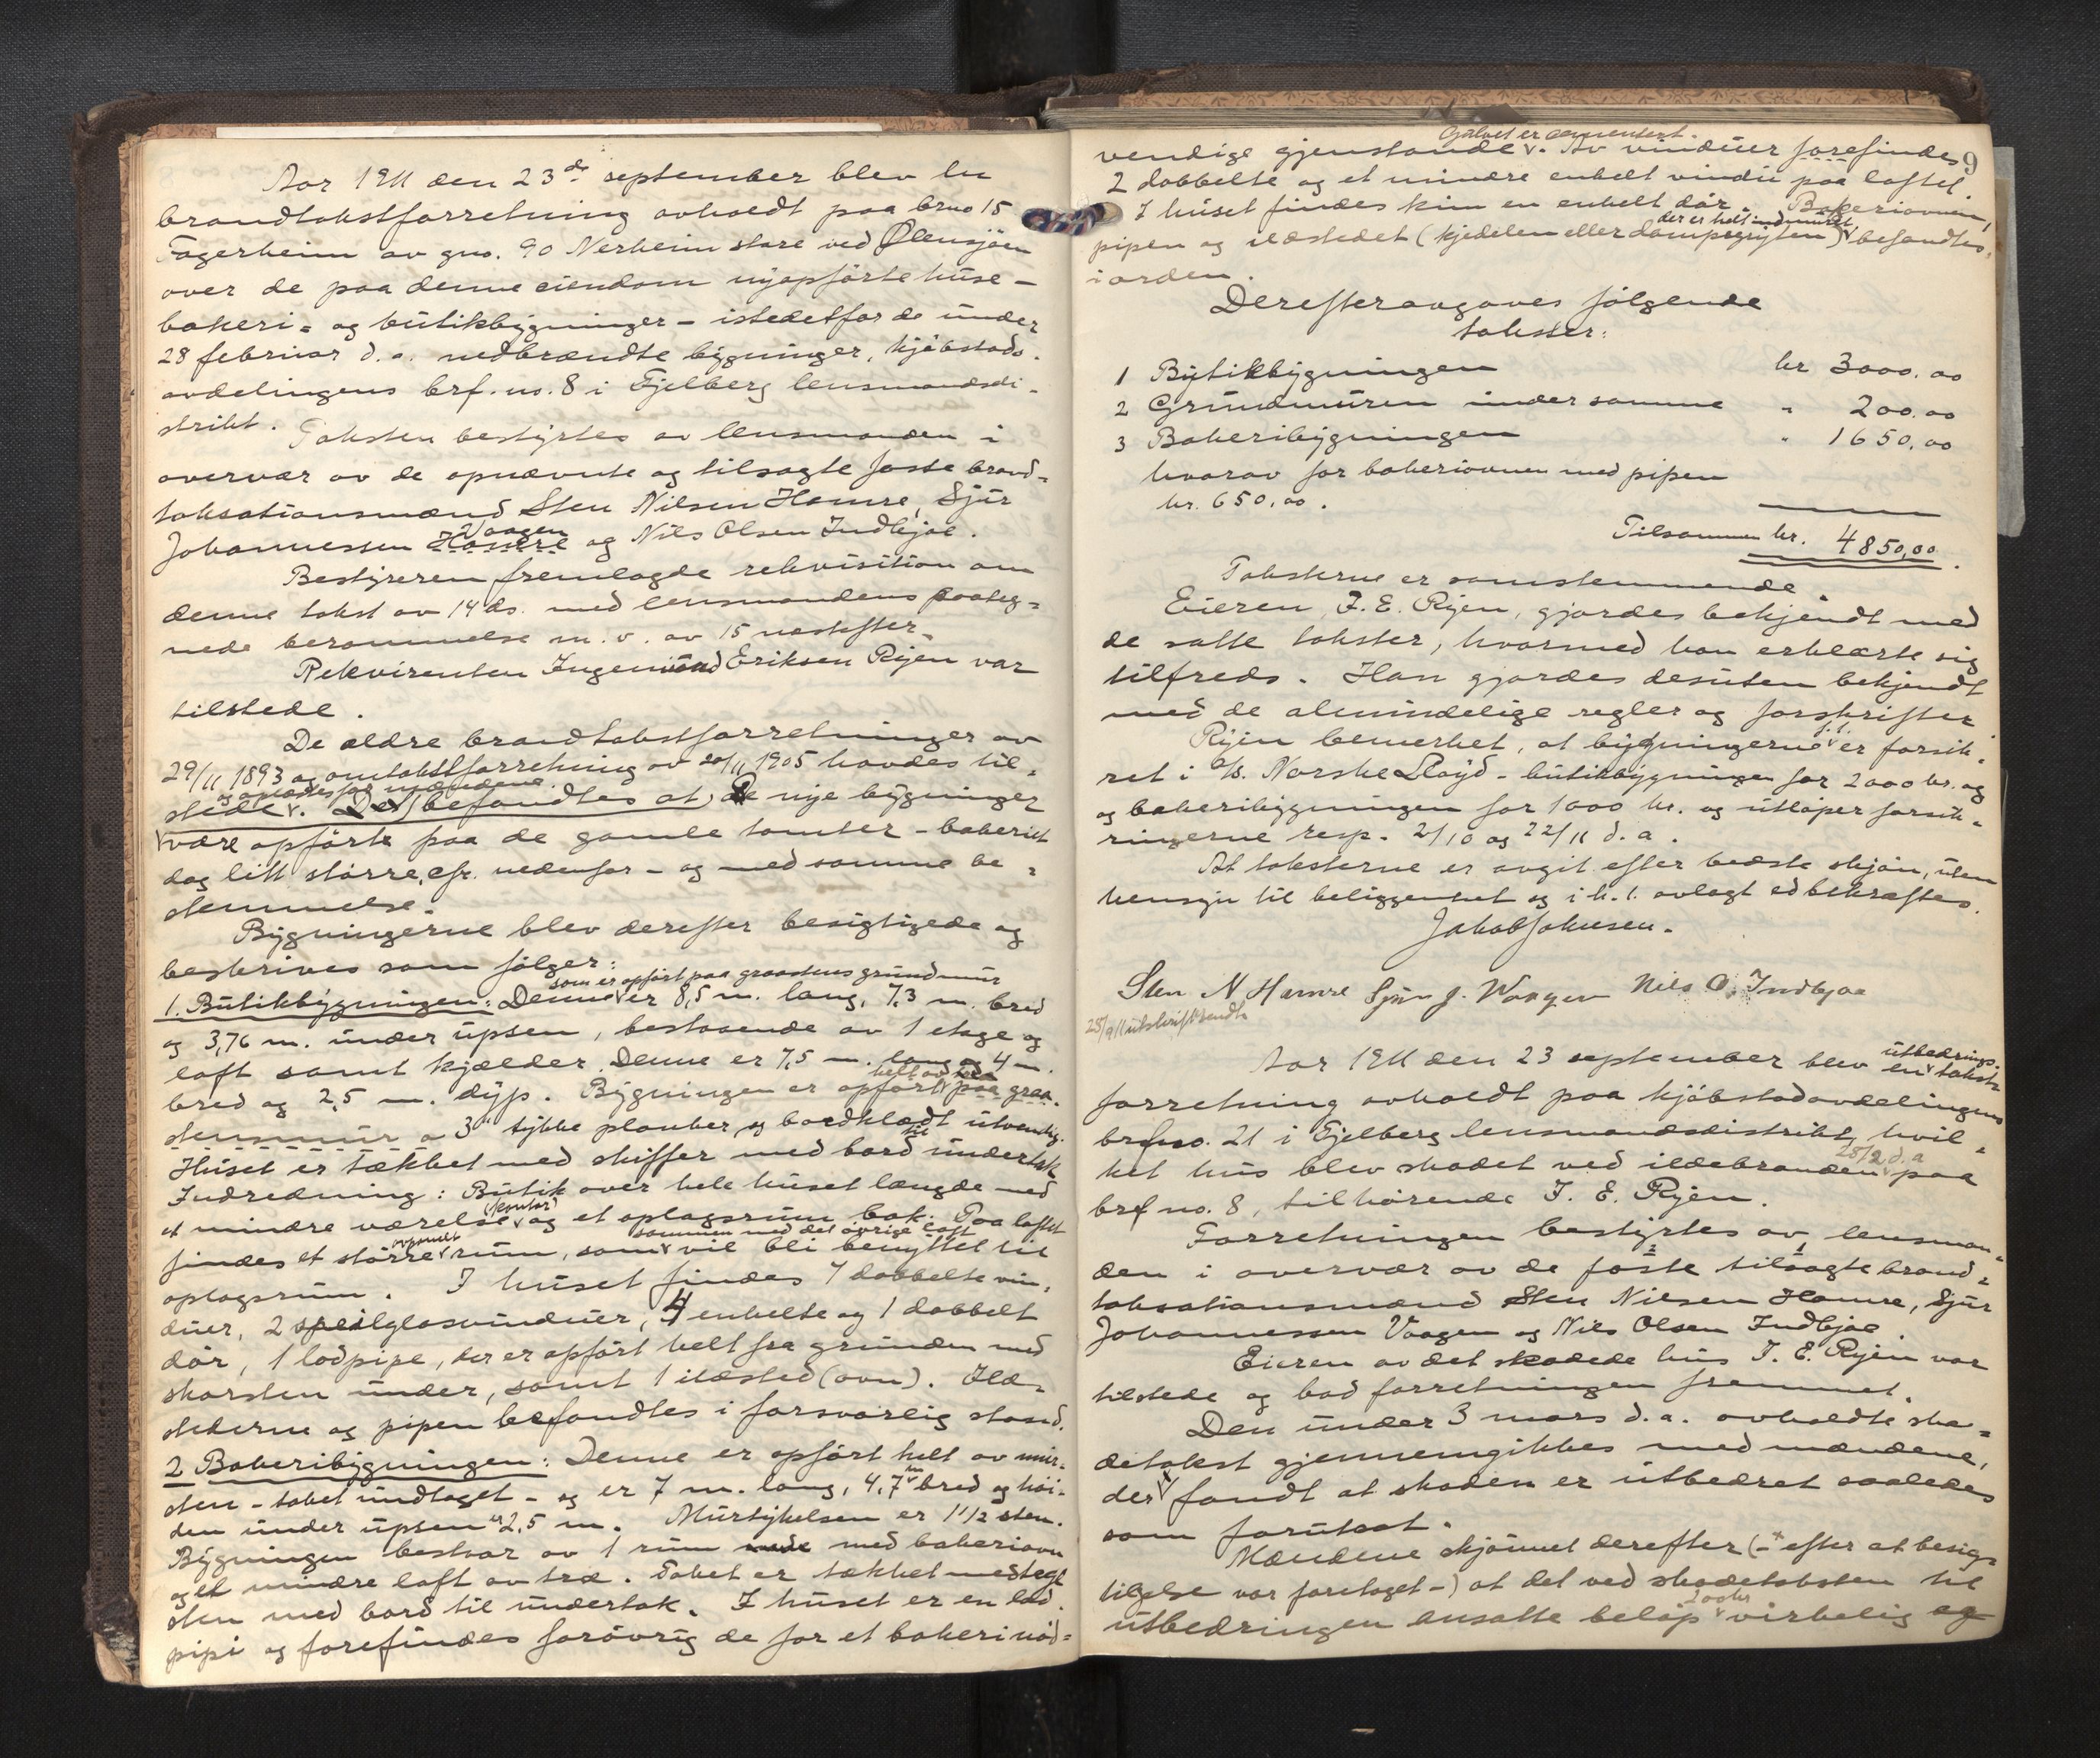 Aar 1911 den 23de september blev en
brandtakstforretning avholdt paa brno 15
Fagerheim av gno. 90 Nerheim store ved Ølensjöen
over de paa denne eiendom nyopförte huse –
bakeri- og butikbygninger – istedetfor de under
28 februar d.a. nedbrændte bygninger, kjöbstads-
avdelingens brf. no. 8 i Fjelberg lensmandsdi-
strikt. Taksten bestyrtes av lensmanden i
overvær av de opnævnte og tilsagte faste brand-
taksationsmænd Sten Nilsen Hamre, Sjur
Vaagen
Johannessen Hamre og Nils Olsen Indbjoe.
Bestyreren fremlagde rekvisition om
denne takst av 14 ds. med lensmandens paateg-
nede berammelse m.v. av 15 næstefter.
Rekvirenten Ingemund Eriksen Ryen var
tilstede.
De ældre brandtakstforretninger av
29/11 1893 og omtakstforretning av 20/11 1905 havdes til-
og oplæstes for mændene
stede. Det befandtes at de nye bygninger
være opförte paa de gamle tomter – bakeriet
dog litt större, cfr. nedenfor – og med samme be-
stemmelse.
Bygningerne blev derefter besigtigede og
beskrives som fölger:
som er opfört paa graastens grundmur
1. Butikbygningen: Denne er 8,5 m. lang, 7,3 m. bred
og 3,76 m. under upsen, bestaaende av 1 etage og
loft samt kjælder. Denne er 7,5 m. lang og 4 m.
helt av
bred og 2,5 m. dyp. Bygningen er opfört paa graa-
stensmur a 3" tykke planker og bordklædt utvendig.
Huset er tækket med skiffer med bord til undertak
Indredning: Butik over hele huset længde med
(kontor)
et mindre værelse og et oplagsrum bak. Paa loftet
avpanelt sammen med det övrige loft
findes et större rum, som vil bli benyttet til
oplagsrum. I huset findes 7 dobbelte vin-
duer, 2 speilglasvinduer, 4 enkelte og 1 dobbelt
dör, 1 lodpipe, der er opfört helt fra grunden med
skorsten under, samt 1 ildsted (ovn). Ild-
stederne og pipen befandtes i forsvarlig stand.
2 Bakeribygningen: Denne er opfört helt av mur-
m
sten – taket undtaget – og er 7 m. lang, 4,7 bred og höi-
den under upsen er 2,5 m. Murtykelsen er 1 1/2 sten.
Bygningen bestaar av 1 rum med bakeriovn
og et mindre loft av træ. Taket er tækket med tegl-
sten med bord til undertak. I huset er en lod-
pipi og forefindes forövrig de for et bakeri nöd-
9
Gulvet er cementert.
vendige gjenstande. Av vinduer forefindes
2 dobbelte og et mindre enkelt vindu paa loftet
I huset findes kun en enkelt dör. Bakeriovnen,
der er helt indmuret
pipen og ildstedet (kjedelen eller dampgryten) befandtes
i orden.
Derefter avgaves fölgende
takster:
1 Butikbygningen kr 3000.00
2 Grundmuren under samme " 200.00
3 Bakeribygningen " 1650.00
hvorav for bakeriovnen med pipen
kr. 650.00.
Tilsammen kr. 4850,00.
Taksterne er samstemmende.
Eieren, I. E. Ryen, gjordes bekjendt med
de satte takster, hvormed han erklærte sig
tilfreds. Han gjordes desuten bekjendt
med de almindelige regler og forskrifter
f.t.
Ryen bemerket, at bygningerne er forsik-
ret i A/S. Norske Lloyd – butikbygningen for 2000 kr. og
og bakeribygningen for 1000 kr. og utlöper forsik-
ringerne resp. 2/10 og 22/11 d.a.
At taksterne er avgit efter bedste skjön, uten
hensyn til beliggenhet og i h.t. avlagt ed bekræftes.
Jakob Johnsen.
Sten N Hamre Sjur J. Waagen Nils O. Indbjoe
28/9 11 utskrift sendt.
utbedrings-
Aar 1911 den 23 september blev en takst-
forretning avholdt paa kjöbstadavdelingens
brfno. 21 i Fjelberg lensmandsdistrikt, hvil-
28/2 d.a
ket hus blev skadet ved ildebranden paa
brf no. 8, tilhörende I. E. Ryen.
Forretningen bestyrtes av lensman-
2 1
den i overvær av de faste tilsagte brand-
taksationsmænd Sten Nilsen Hamre, Sjur
Johannessen Vaagen og Nils Olsen Indbjoe.
Eieren av det skadede hus I. E. Ryen var
tilstede og bad forretningen fremmet.
Den under 3 mars d.a. avholdte ska-
detakst gjennemgikkes med mændene,
der fandt at skaden er utbedret saaledes
som forutsat.
Mændene skjönnet derefter (– efter at besig-
tigelse var foretaget –) at det ved skadetaksten til
200 kr
utbedringen ansatte belöp virkelig og